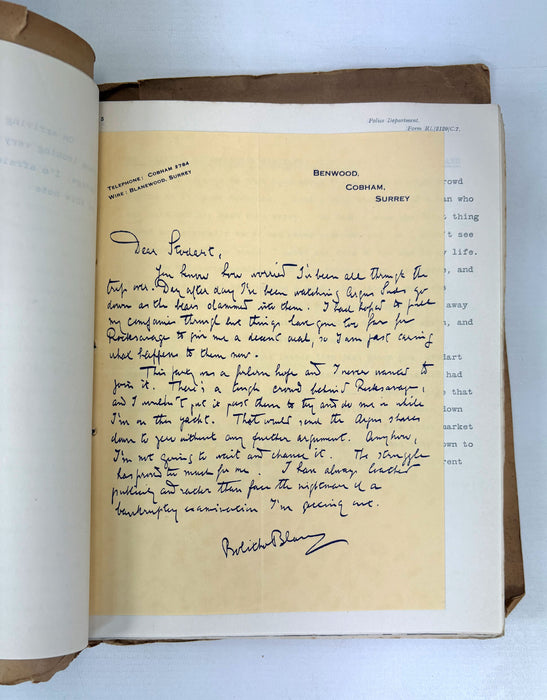 On arriving
looking very
I'm afraid
this note
5
Police Department.
Form RL/2120/C.7.
TELEPHONE: COBHAM 2784
WIRE: BLANEWOOD, SURREY
BENWOOD,
COBHAM,
SURREY
Dear Stodart,
You know how worried I've been all through the
trip over. Day after day I've been watching Argus Suds go
down as the bears slammed into them. I had hoped to pull
my companies through but things have gone too far for
Rocksavage to give me a decent deal, so I am past caring
what happens to them now.
This party was a forlorn hope and I never wanted to
join it. There's a tough crowd behind Rocksavage,
and I wouldn't put it past them to try and do me in while
I'm on this yacht. That would send the Argus shares
down to zero without any further argument. Anyhow,
I'm not going to wait and chance it. The struggle
has proved too much for me. I have always loathed
publicity and rather than face the nightmare of a
bankruptcy examination I'm getting out.
Bolitho Blane
rowd
an who
t thing
't see
y life.
e, and
s
away
n, and
dart
had
e that
down
market
own to
rent